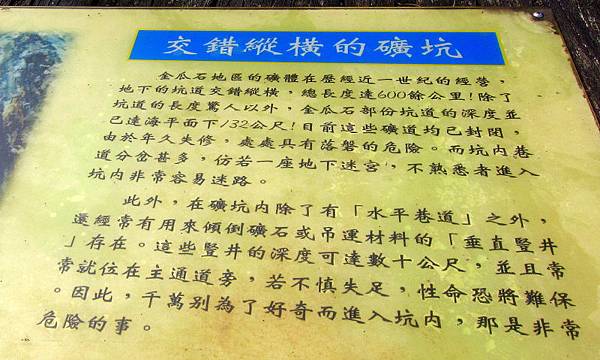 交錯縱橫的礦坑
金瓜石地區的礦體在歷經近一世紀的經營，
地下的坑道交錯縱橫，總長度達600餘公里！除了
坑道的長度驚人以外，金瓜石部份坑道的深度並
已達海平面下132公尺！目前這些礦道均已封閉，
由於年久失修，處處具有落磐的危險。而坑內巷
道分岔甚多，仿若一座地下迷宮，不熟悉者進入
坑內非常容易迷路。
此外，在礦坑內除了有「水平巷道」之外，
還經常有用來傾倒礦石或吊運材料的「垂直豎井
」存在。這些豎井的深度可達數十公尺，並且常
常就位在主通道旁，若不慎失足，性命恐將難保
。因此，千萬別為了好奇而進入坑內，那是非常
危險的事。